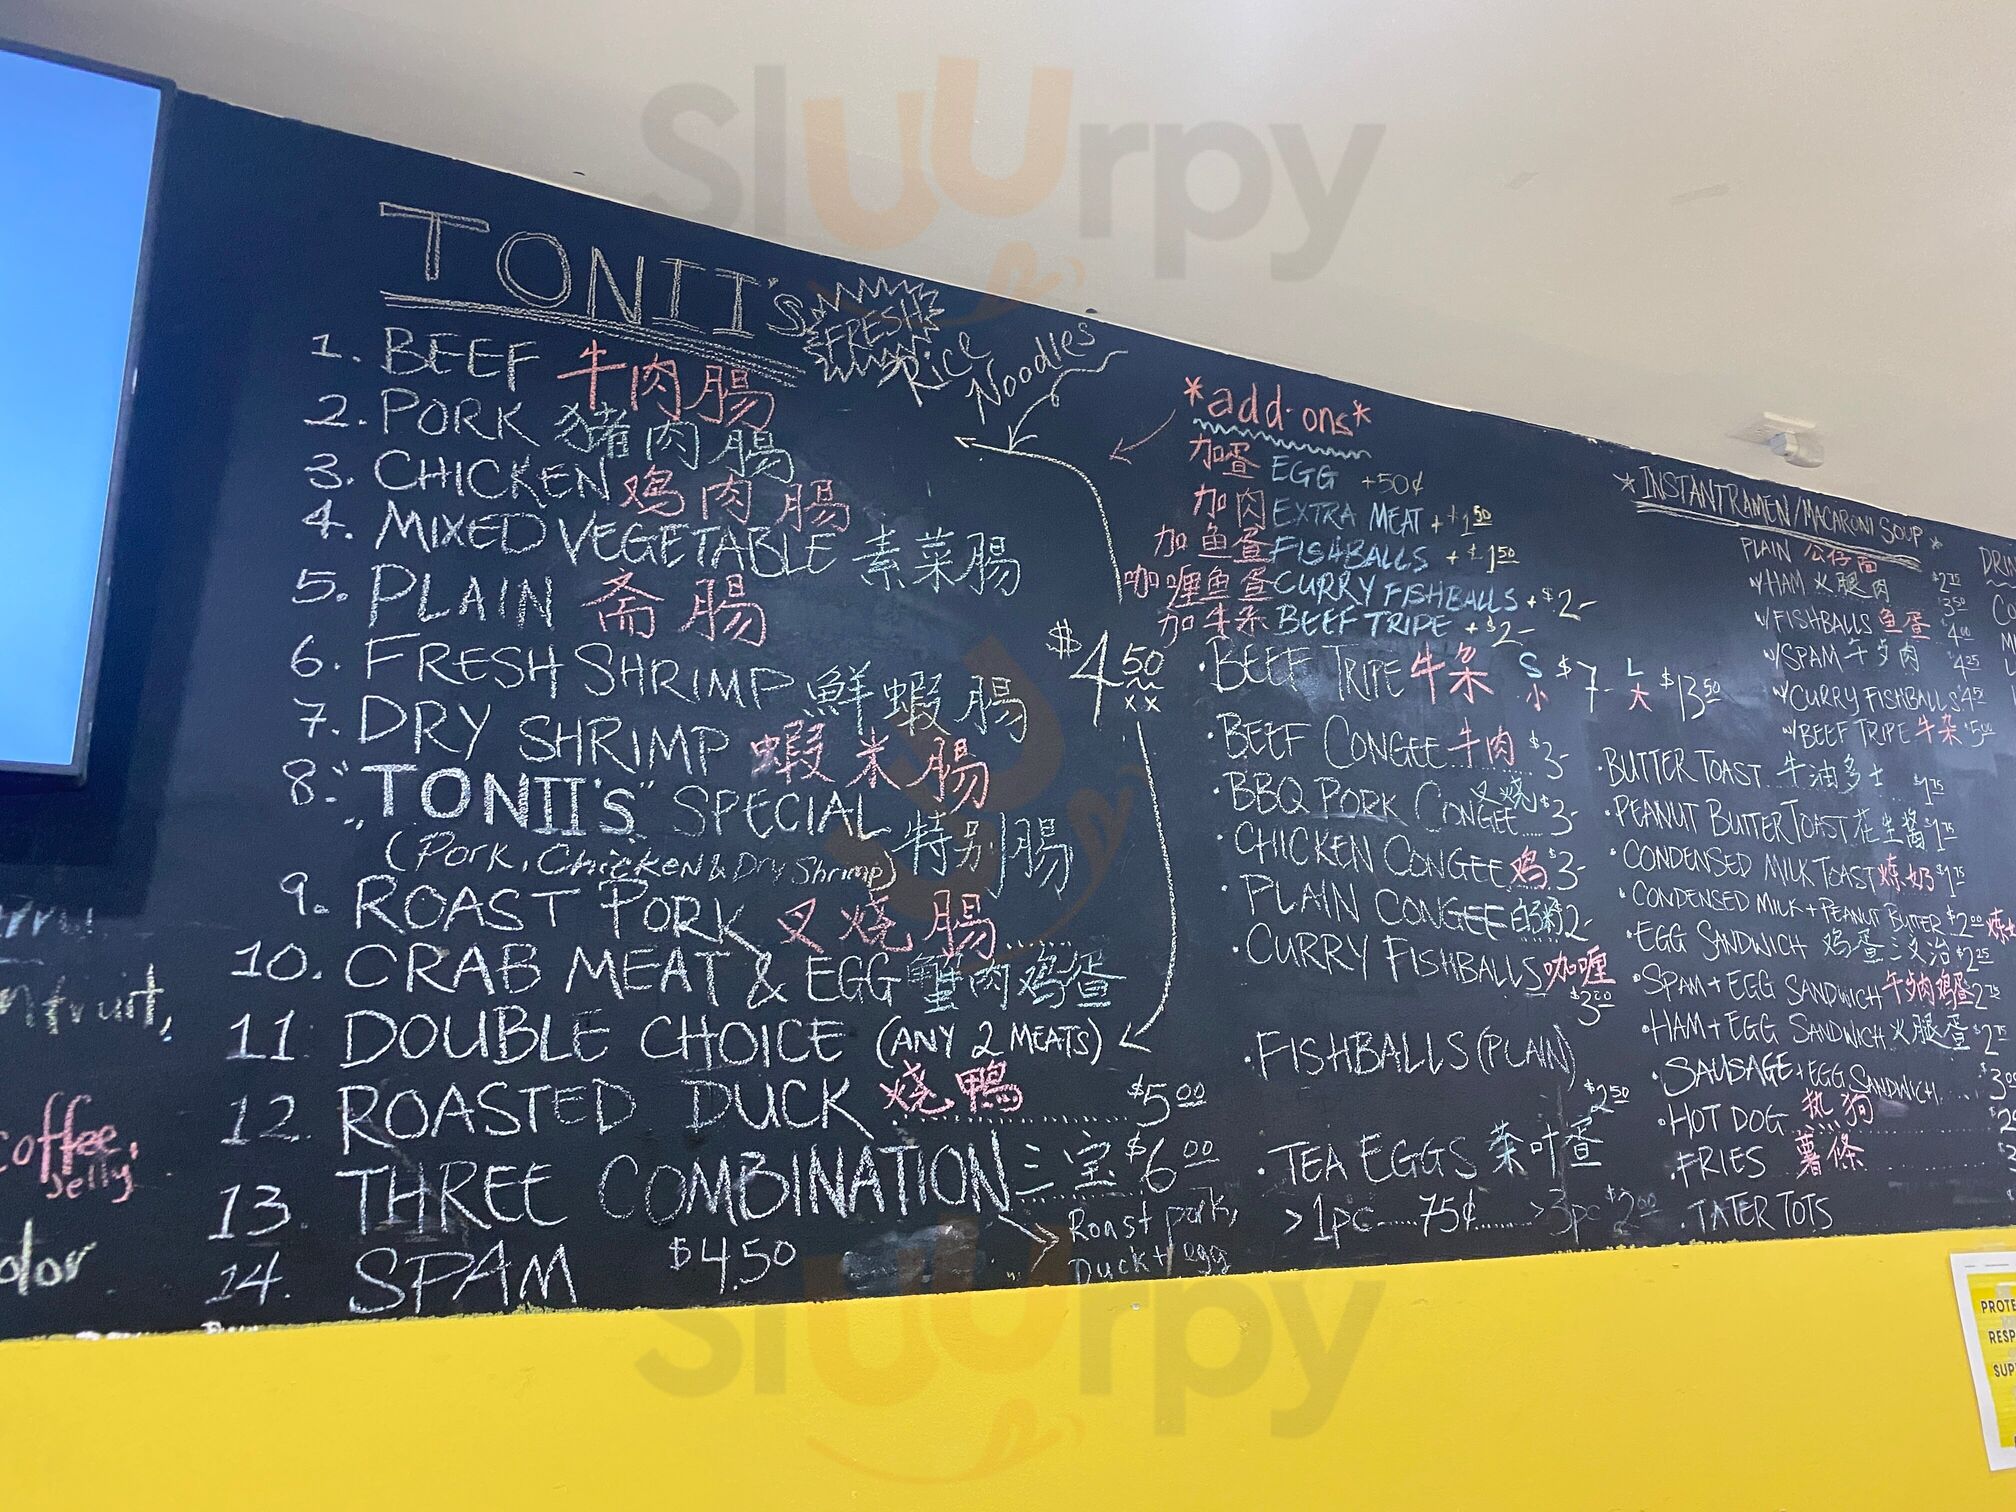 Sluurpy
TONII's FRESH Rice Noodles
1. BEEF 牛肉腸
2. PORK 猪肉腸
3. CHICKEN 鸡肉腸
4. MIXED VEGETABLE 素菜腸
5. PLAIN 斋腸
6. FRESH SHRIMP 鮮蝦腸
7. DRY SHRIMP 蝦米腸
8. "TONII's" SPECIAL 特别腸
(Pork, Chicken & Dry Shrimp)
9. ROAST PORK 叉烧腸
10. CRAB MEAT & EGG 蟹肉鸡蛋
11. DOUBLE CHOICE (ANY 2 MEATS)
$4.50
12. ROASTED DUCK 烧鴨 $5.00
13. THREE COMBINATION 三宝 $6.00
Roast pork,
Duck + egg
14. SPAM $4.50
*add-ons*
加蛋 EGG +50¢
加肉 EXTRA MEAT + $1.50
加鱼蛋 FISHBALLS + $1.50
咖喱鱼蛋 CURRY FISHBALLS + $2-
加牛杂 BEEF TRIPE + $2-
· BEEF TRIPE 牛杂 S 小 $7- L 大 $13.50
· BEEF CONGEE 牛肉 $3-
· BBQ PORK CONGEE 叉烧 $3-
· CHICKEN CONGEE 鸡 $3-
· PLAIN CONGEE 白粥 2-
· CURRY FISHBALLS 咖喱
$3.00
· FISHBALLS (PLAIN)
$2.50
· TEA EGGS 茶叶蛋
>1pc 75¢ >3pc $2.00
* INSTANT RAMEN/MACARONI SOUP *
PLAIN 公仔面 $2.75
w/HAM 火腿肉 $3.50
w/FISHBALLS 鱼蛋 $4.00
w/SPAM 午歺肉 $4.25
w/CURRY FISHBALLS $4.50
w/BEEF TRIPE 牛杂 $5.00
· BUTTER TOAST 牛油多士 $1.75
· PEANUT BUTTER TOAST 花生酱 $1.75
· CONDENSED MILK TOAST 炼奶 $1.75
· CONDENSED MILK + PEANUT BUTTER $2.00
· EGG SANDWICH 鸡蛋三文治 $2.25
· SPAM + EGG SANDWICH 午歺肉鸡蛋 $2.75
· HAM + EGG SANDWICH 火腿蛋 $2.75
· SAUSAGE + EGG SANDWICH
· HOT DOG 热狗
· FRIES 薯條
· TATER TOTS
coffee,
Jelly
Sluurpy